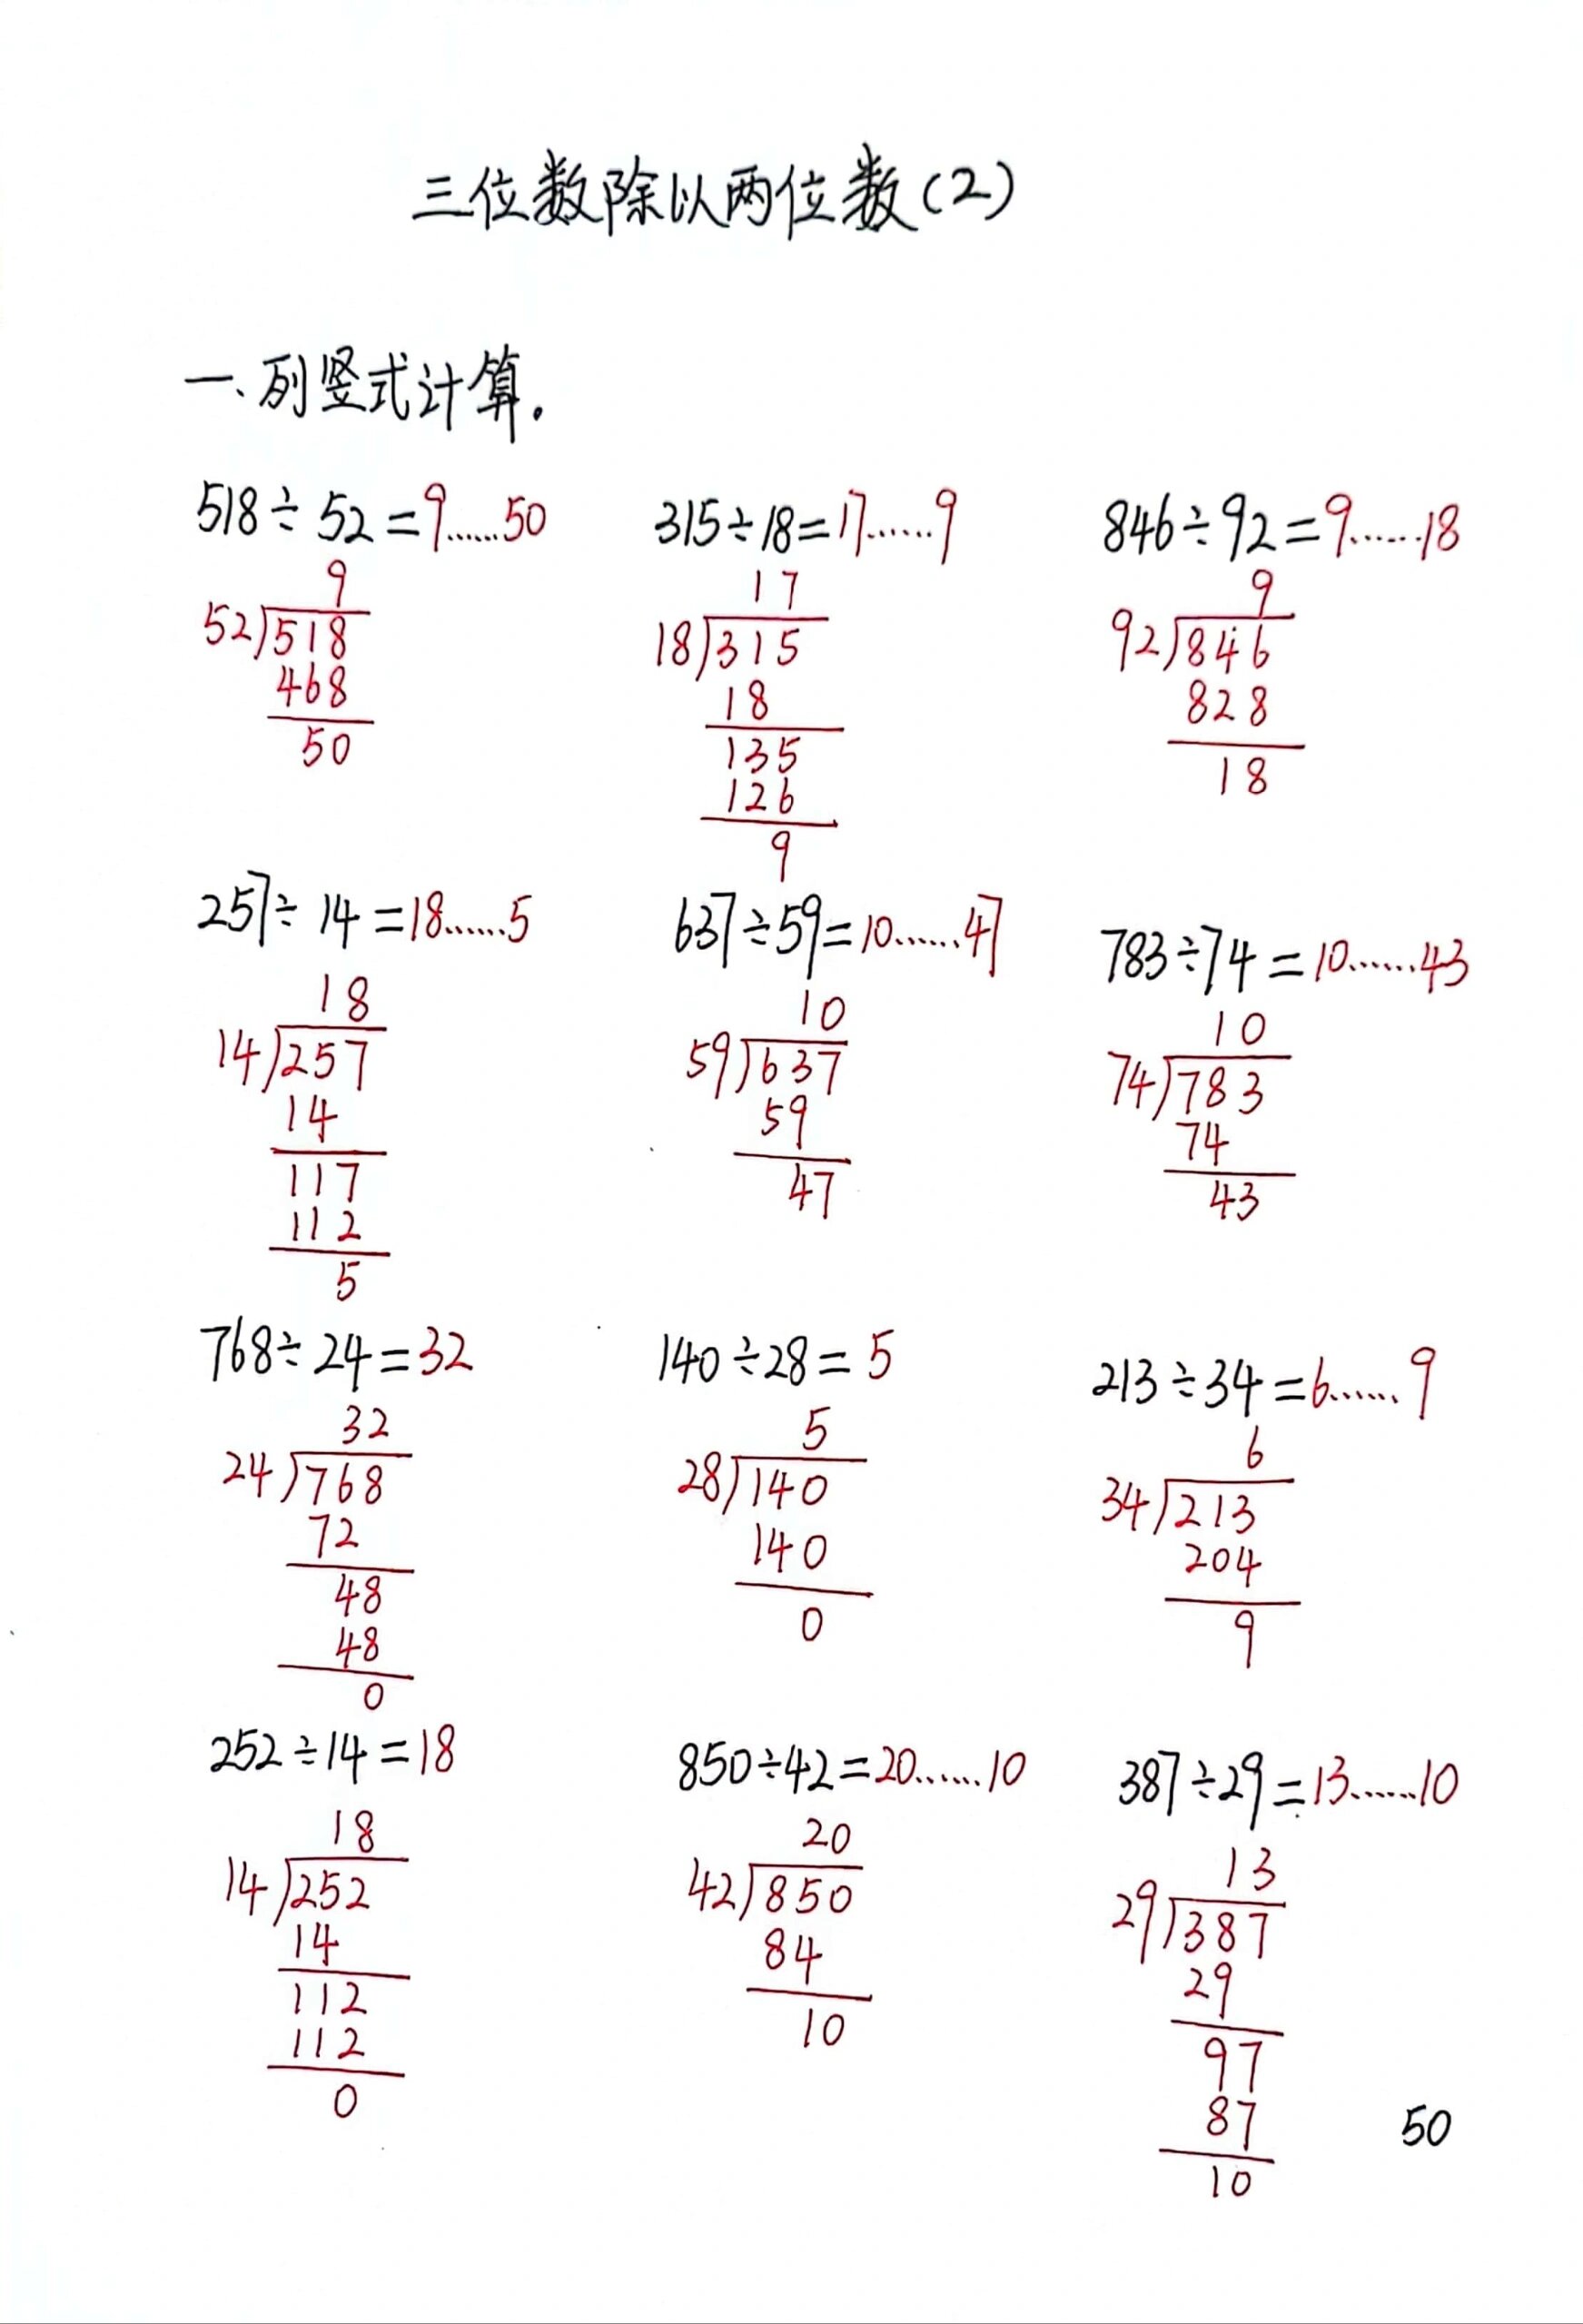 三位数除以两位数(2)
一、列竖式计算.
518÷52=9......50
9
52)518
468
50
315÷18=17......9
17
18)315
18
135
126
9
846÷92=9......18
9
92)846
828
18
257÷14=18......5
18
14)257
14
117
112
5
637÷59=10......47
10
59)637
59
47
783÷74=10......43
10
74)783
74
43
768÷24=32
32
24)768
72
48
48
0
140÷28=5
5
28)140
140
0
213÷34=6......9
6
34)213
204
9
252÷14=18
18
14)252
14
112
112
0
850÷42=20......10
20
42)850
84
10
387÷29=13......10
13
29)387
29
97
87
10
50